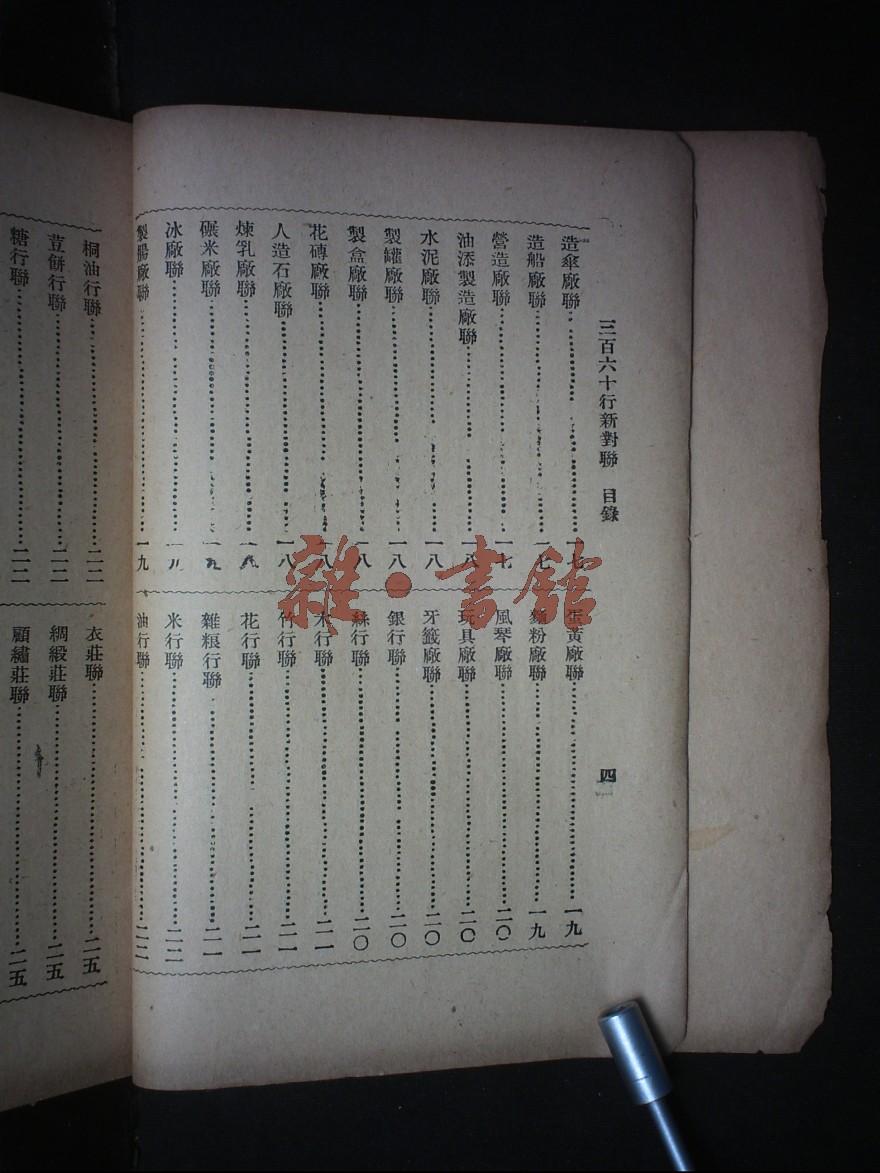 三百六十行新對聯 目錄 四
造傘廠聯 一七
造船廠聯 一七
營造廠聯 一七
油漆製造廠聯 一八
水泥廠聯 一八
製罐廠聯 一八
製盒廠聯 一八
花磚廠聯 一八
人造石廠聯 一八
煉乳廠聯 一九
碾米廠聯 一九
冰廠聯 一九
製腸廠聯 一九
蛋黃廠聯 一九
麵粉廠聯 一九
風琴廠聯 二〇
玩具廠聯 二〇
牙籤廠聯 二〇
銀行聯 二〇
絲行聯 二〇
木行聯 二一
竹行聯 二一
花行聯 二一
雜粮行聯 二一
米行聯 二二
油行聯 二二
桐油行聯 二二
荳餅行聯 二二
糖行聯 二二
衣莊聯 二五
綢緞莊聯 二五
顧繡莊聯 二五
雜·書館